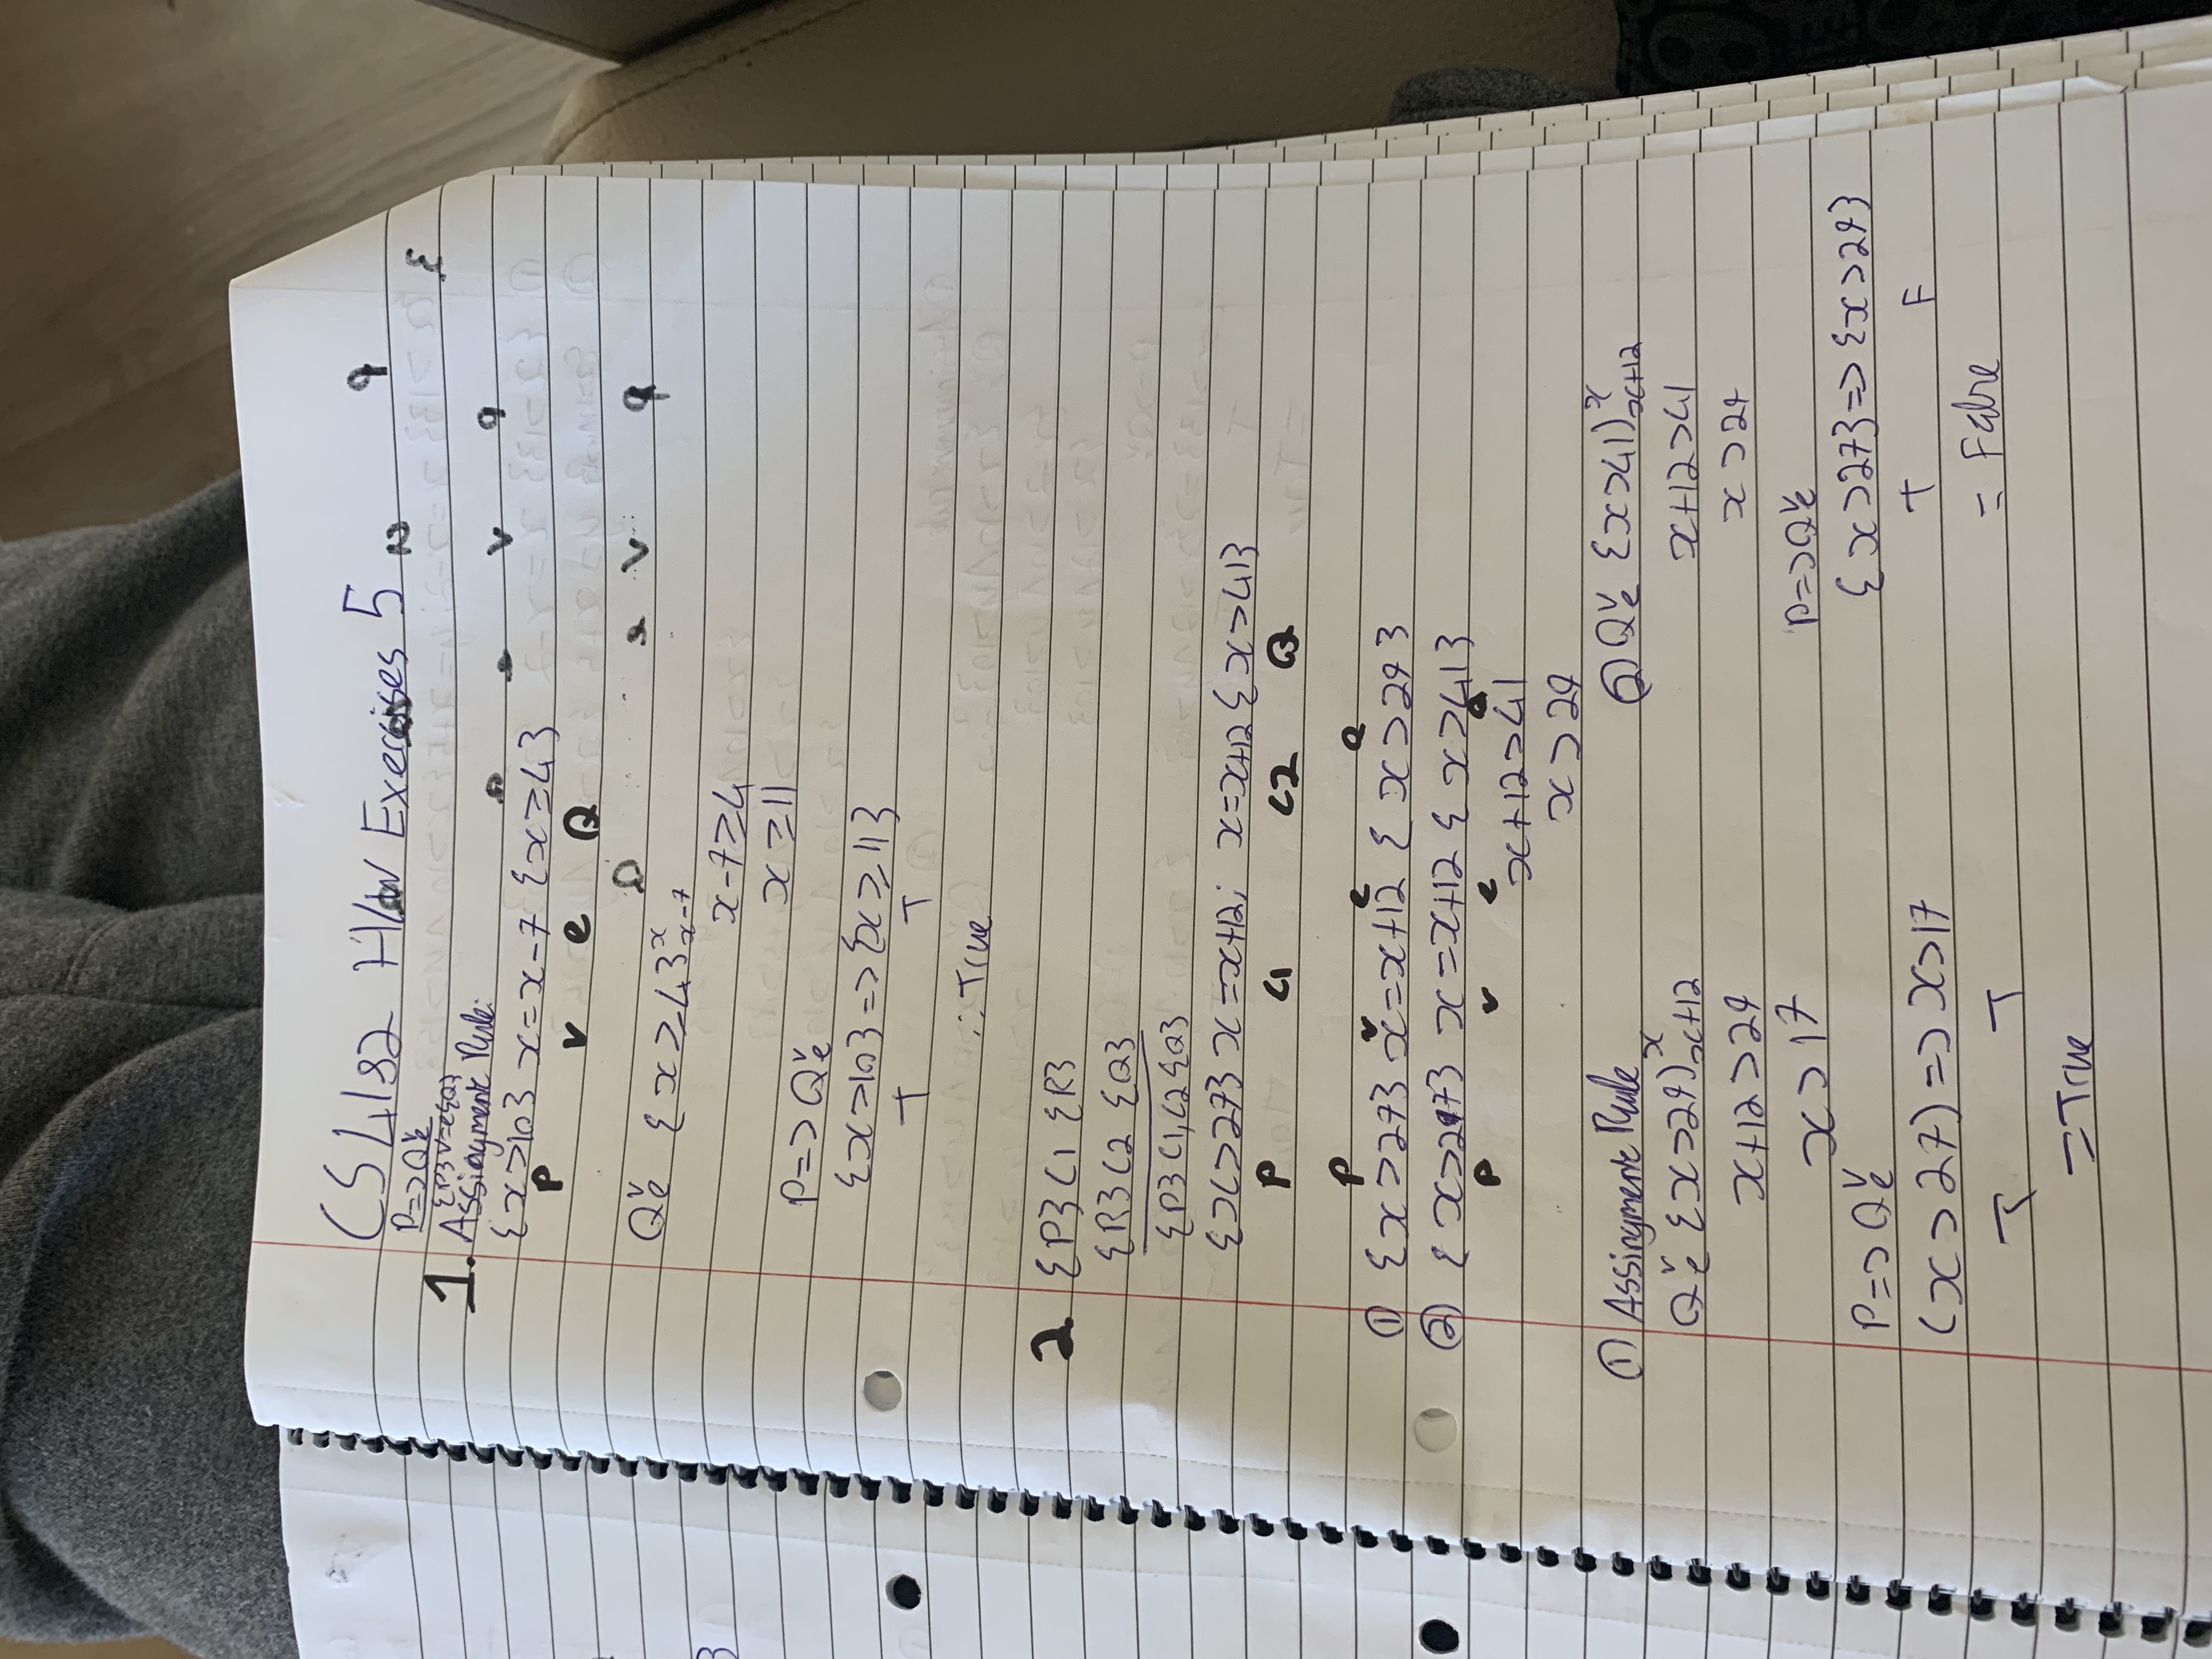 CS4182 H/W Exercises 5
P=>Qᵛₑ
{P}V=e{Q}
1. Assingment Rule:
{x>10} x=x-7 {x≥4}
P v e Q
Qᵛₑ {x≥4}ˣₓ₋₇
x-7≥4
x≥11
P=>Qᵛₑ
{x>10} => {x≥11}
T T
∴ True
2 {P} C1 {R}
{R} C2 {Q}
{P} C1, C2 {Q}
{x>27} x=x+12; x=x+12 {x>41}
P C1 C2 Q
P v e Q
① {x>27} x=x+12 {x>29}
② {x>297} x=x+12 {x>41}
P v e Q
x+12>41
x>29
① Assingment Rule
Qᵛₑ {x>29)ˣₓ₊₁₂
x+12>29
x>17
P=>Qᵛₑ
(x>27) => x>17
T T
=True
② Qᵛₑ {x>41)ˣₓ₊₁₂
x+12>41
x>29
P=>Qᵛₑ
{x>27} => {x>29}
T F
= False